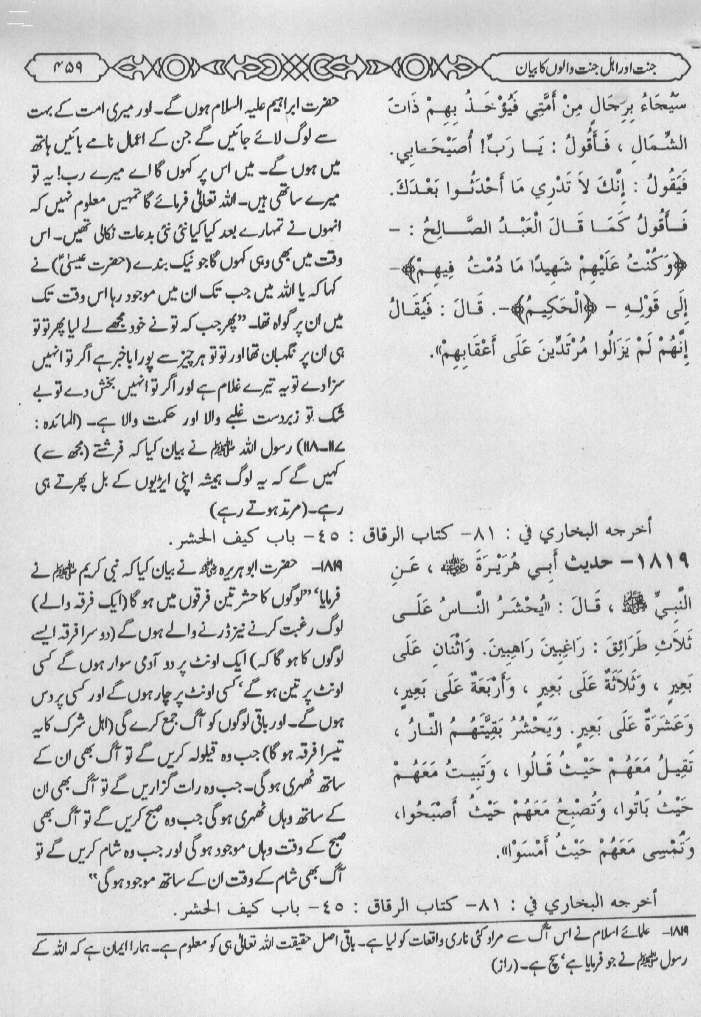 جنت اور اہل جنت والوں کا بیان
۴۵۹
سَيُجَاءُ بِرِجَالٍ مِنْ أُمَّتِي فَيُؤْخَذُ بِهِمْ ذَاتَ
الشِّمَالِ ، فَأَقُولُ : يَا رَبِّ! أُصَيْحَابِي.
فَيَقُولُ : إِنَّكَ لاَ تَدْرِي مَا أَحْدَثُوا بَعْدَكَ.
فَأَقُولُ كَمَا قَالَ الْعَبْدُ الصَّالِحُ : -
﴿وَكُنْتُ عَلَيْهِمْ شَهِيدًا مَا دُمْتُ فِيهِمْ﴾-
إِلَى قَوْلِهِ - ﴿الْحَكِيمُ﴾-. قَالَ : فَيُقَالُ
إِنَّهُمْ لَمْ يَزَالُوا مُرْتَدِّينَ عَلَى أَعْقَابِهِمْ».
حضرت ابراہیم علیہ السلام ہوں گے۔ اور میری امت کے بہت
سے لوگ لائے جائیں گے جن کے اعمال نامے بائیں ہاتھ
میں ہوں گے۔ میں اس پر کہوں گا اے میرے رب! یہ تو
میرے ساتھی ہیں۔ اللہ تعالیٰ فرمائے گا تمہیں معلوم نہیں کہ
انہوں نے تمہارے بعد کیا کیا نئی نئی بدعات نکالی تھیں۔ اس
وقت میں بھی وہی کہوں گا جو نیک بندے (حضرت عیسیٰؑ) نے
کہا کہ یا اللہ میں جب تک ان میں موجود رہا اس وقت تک
میں ان پر گواہ تھا۔ ”پھر جب کہ تو نے خود مجھے لے لیا پھر تو تو
ہی ان پر نگہبان تھا اور تو تو ہر چیز سے پورا باخبر ہے اگر تو انہیں
سزا دے تو یہ تیرے غلام ہے اور اگر تو انہیں بخش دے تو بے
شک تو زبردست غلبے والا اور حکمت والا ہے۔ (المائدہ :
۱۱۷۔۱۱۸) رسول اللہ ﷺ نے بیان کیا کہ فرشتے (مجھ سے)
کہیں گے کہ یہ لوگ ہمیشہ اپنی ایڑیوں کے بل پھرتے ہی
رہے۔ (مرتد ہوتے رہے)
أخرجه البخاري في : ٨١- كتاب الرقاق : ٤٥- باب كيف الحشر.
١٨١٩- حديث أَبِي هُرَيْرَةَ رضي الله عنه ، عَنِ
النَّبِيِّ ﷺ ، قَالَ : «يُحْشَرُ النَّاسُ عَلَى
ثَلاَثِ طَرَائِقَ : رَاغِبِينَ رَاهِبِينَ. وَاثْنَانِ عَلَى
بَعِيرٍ ، وَثَلاَثَةٌ عَلَى بَعِيرٍ ، وَأَرْبَعَةٌ عَلَى بَعِيرٍ،
وَعَشَرَةٌ عَلَى بَعِيرٍ. وَيَحْشُرُ بَقِيَّتَهُمُ النَّارُ ،
تَقِيلُ مَعَهُمْ حَيْثُ قَالُوا ، وَتَبِيتُ مَعَهُمْ
حَيْثُ بَاتُوا، وَتُصْبِحُ مَعَهُمْ حَيْثُ أَصْبَحُوا،
وَتُمْسِى مَعَهُمْ حَيْثُ أَمْسَوْا».
۱۸۱۹- حضرت ابو ہریرہ رضی اللہ عنہ نے بیان کیا کہ نبی کریم ﷺ نے
فرمایا‘ ”لوگوں کا حشر تین فرقوں میں ہو گا (ایک فرقہ والے)
لوگ رغبت کرنے نیز ڈرنے والے ہوں گے (دوسرا فرقہ ایسے
لوگوں کا ہو گا کہ) ایک اونٹ پر دو آدمی سوار ہوں گے کسی
اونٹ پر تین ہوگے‘ کسی اونٹ پر چار ہوں گے اور کسی پر دس
ہوں گے۔ اور باقی لوگوں کو آگ جمع کرے گی (اہل شرک کا یہ
تیسرا فرقہ ہو گا) جب وہ قیلولہ کریں گے تو آگ بھی ان کے
ساتھ ٹھہری ہوگی۔ جب وہ رات گزاریں گے تو آگ بھی ان
کے ساتھ وہاں ٹھہری ہوگی جب وہ صبح کریں گے تو آگ بھی
صبح کے وقت وہاں موجود ہوگی اور جب وہ شام کریں گے تو
آگ بھی شام کے وقت ان کے ساتھ موجود ہوگی“
أخرجه البخاري في : ٨١- كتاب الرقاق : ٤٥- باب كيف الحشر.
۱۸۱۹- علمائے اسلام نے اس آگ سے مراد کئی ناری واقعات کو لیا ہے۔ باقی اصل حقیقت اللہ تعالیٰ ہی کو معلوم ہے۔ ہمارا ایمان ہے کہ اللہ کے
رسول ﷺ نے جو فرمایا ہے‘ سچ ہے۔ (راز)